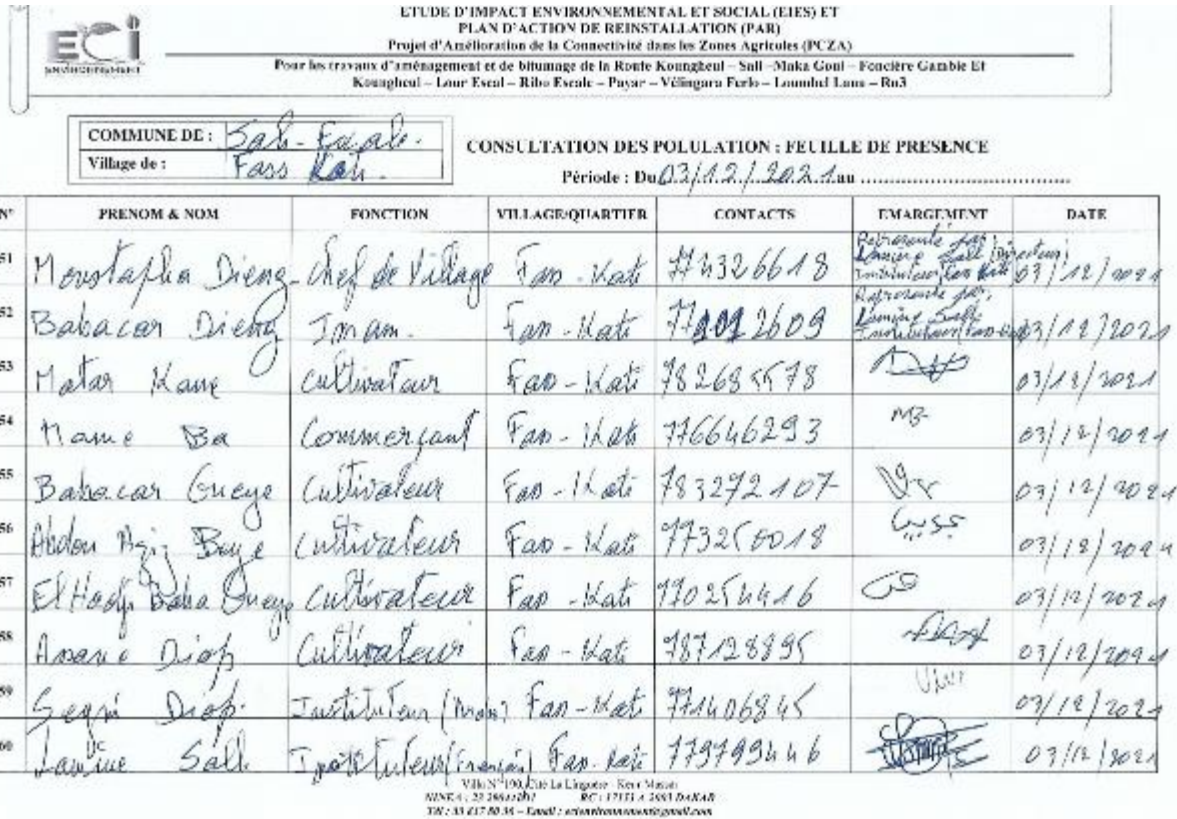 ETUDE D'IMPACT ENVIRONNEMENTAL ET SOCIAL (EIES) ET
PLAN D'ACTION DE REINSTALLATION (PAR)
Projet d'Amélioration de la Connectivité dans les Zones Agricoles (PCZA)
Pour les travaux d'aménagement et de bitumage de la Route Koungheul – Sali –Maka Goui – Foncière Gambie Et
Koungheul – Lour Escal – Ribo Escale – Payar – Vélingara Ferlo – Loumbel Lana – Rn3
ECI
ENVIRONNEMENT
COMMUNE DE : Sali-Escale.
Village de : Fass Kati.
CONSULTATION DES POLULATION : FEUILLE DE PRESENCE
Période : Du 03/12/2021 au
N° PRENOM & NOM FONCTION VILLAGE/QUARTIER CONTACTS EMARGEMENT DATE
51 Moustapha Dieng Chef de Village Fass-Kati 774326618 Représenté par Lamine Sall (Directeur) 03/12/2021
52 Babacar Dieng Imam. Fass-Kati 2609 Représenté par, Lamine Sall 03/12/2021
53 Matar Kane Cultivateur Fass-Kati 782685578 03/12/2021
54 Mame Ba Commerçant Fass-Kati 776646293 03/12/2021
55 Babacar Gueye Cultivateur Fass-Kati 783272107 03/12/2021
56 Abdou Aziz Cultivateur Fass-Kati 03/12/2021
57 El Hadji Baba Gueye Cultivateur Fass-Kati 770254416 03/12/2021
58 Assane Diop Cultivateur Fass-Kati 787128895 03/12/2021
59 Diop. Instituteur Fass-Kati 771406845 03/12/2021
60 Lamine Sall Instituteur (Français) Fass-Kati 779799446 03/12/2021
Villa N° 190, Cité La Linguère - Keur Massar
RC : 17151 A 2003 DAKAR
Tél : 33 817 80 38 – Email : ecienvironnement@gmail.com